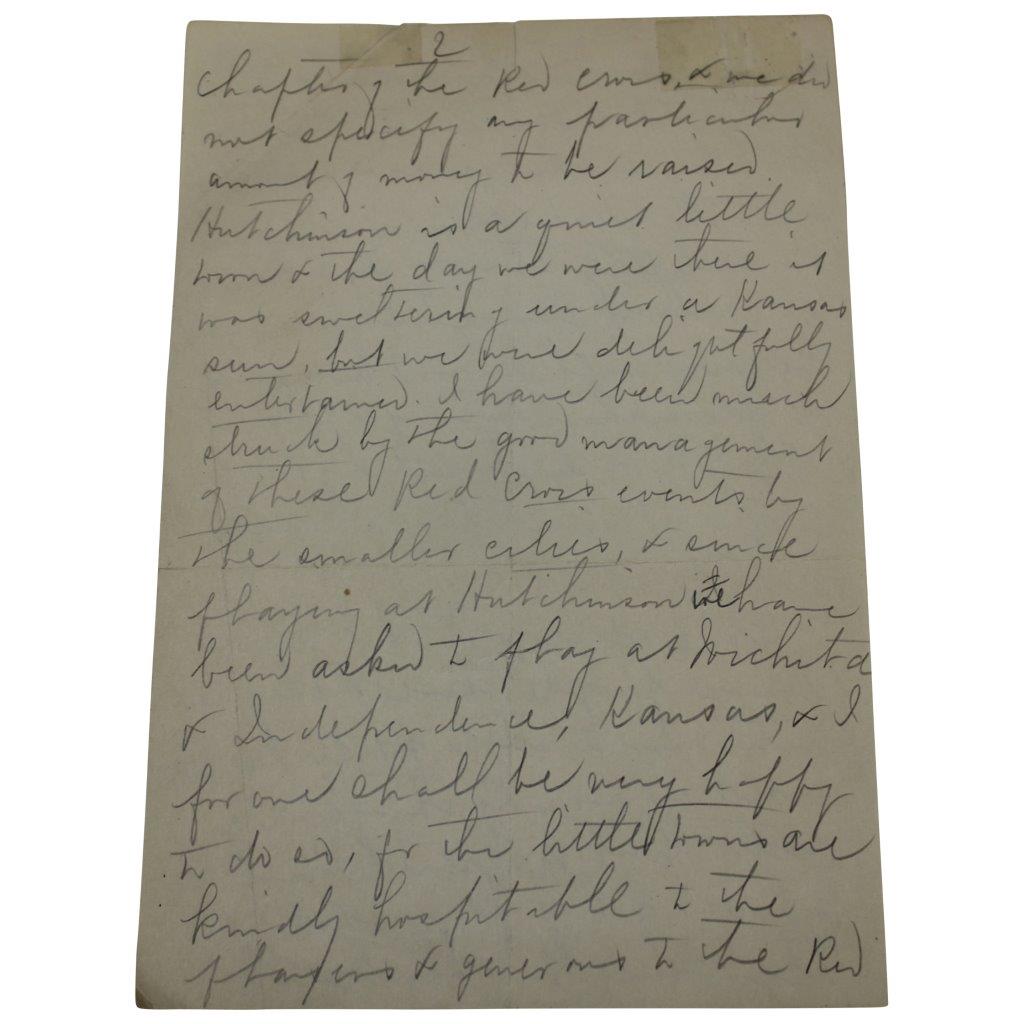 2
Chapter of the Red Cross, & we did
not specify any particular
amount of money to be raised.
Hutchinson is a quiet little
town & the day we were there it
was sweltering under a Kansas
sun, but we were delightfully
entertained. I have been much
struck by the good management
of these Red Cross events by
the smaller cities, & since
playing at Hutchinson we have
been asked to play at Wichita
& Independence, Kansas, & I
for one shall be very happy
to do so, for the little towns are
kindly hospitable to the
players & generous to the Red